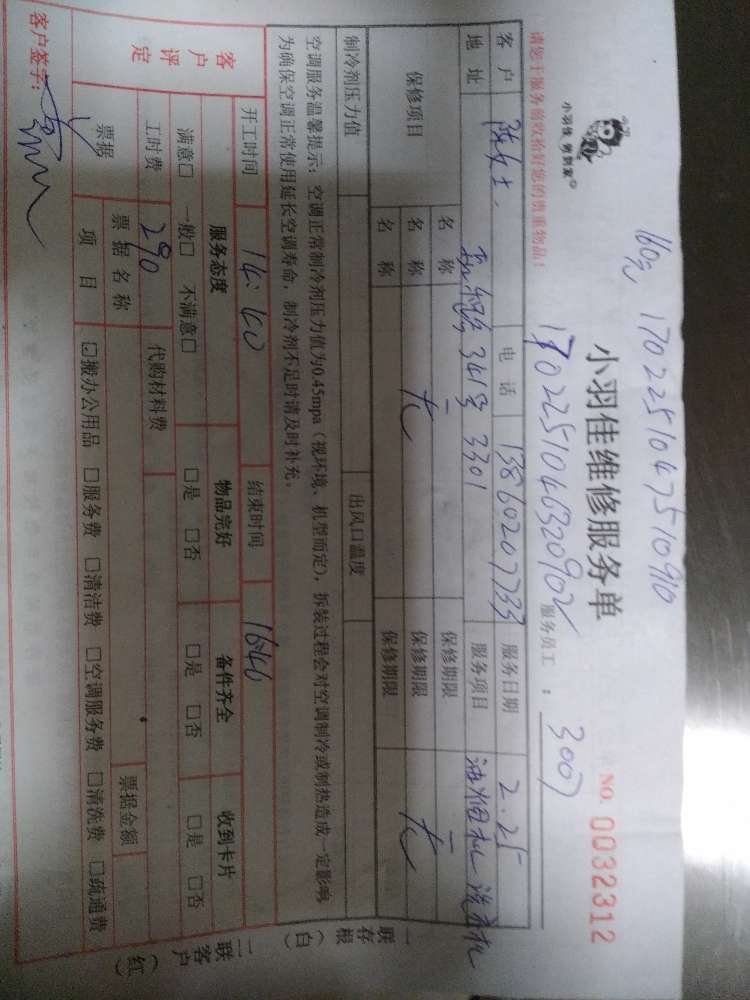 160元 1702251047510910
小羽佳 到到家
小羽佳维修服务单
NO. 0032312
1702251046320902
请您于服务前收拾好您的贵重物品!
服务员工: 3007
客户 陈女士 电话 13860207333 服务日期 2.25
地址 341号3301 服务项目 油烟机 洗衣机
保修项目 名称 保修期限
名称 无 保修期限 无
名称 保修期限
制冷剂压力值 出风口温度
空调服务温馨提示:空调正常制冷剂压力值为0.45mpa(视环境、机型而定),拆装过程会对空调制冷或制热造成一定影响
为确保空调正常使用延长空调寿命,制冷剂不足时请及时补充。
开工时间 14:40 结束时间 16:40
客户评定 服务态度 物品完好 备件齐全 收到卡片
满意□ 一般□ 不满意□ □是 □否 □是 □否 □是 □否
工时费 290 代购材料费
票据 票据名称 票据金额
项目 □搬办公用品 □服务费 □清洁费 □空调服务费 □清洗费 □疏通费
客户签字:
一联存根(白)
二联客户(红)